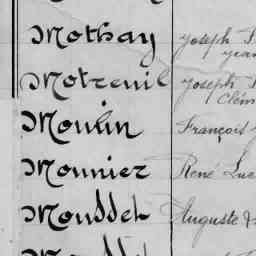 Mothay Joseph
Jean
Motreuil Joseph
Clém
Moulin François
Mounier René Luc
Mouddet Auguste